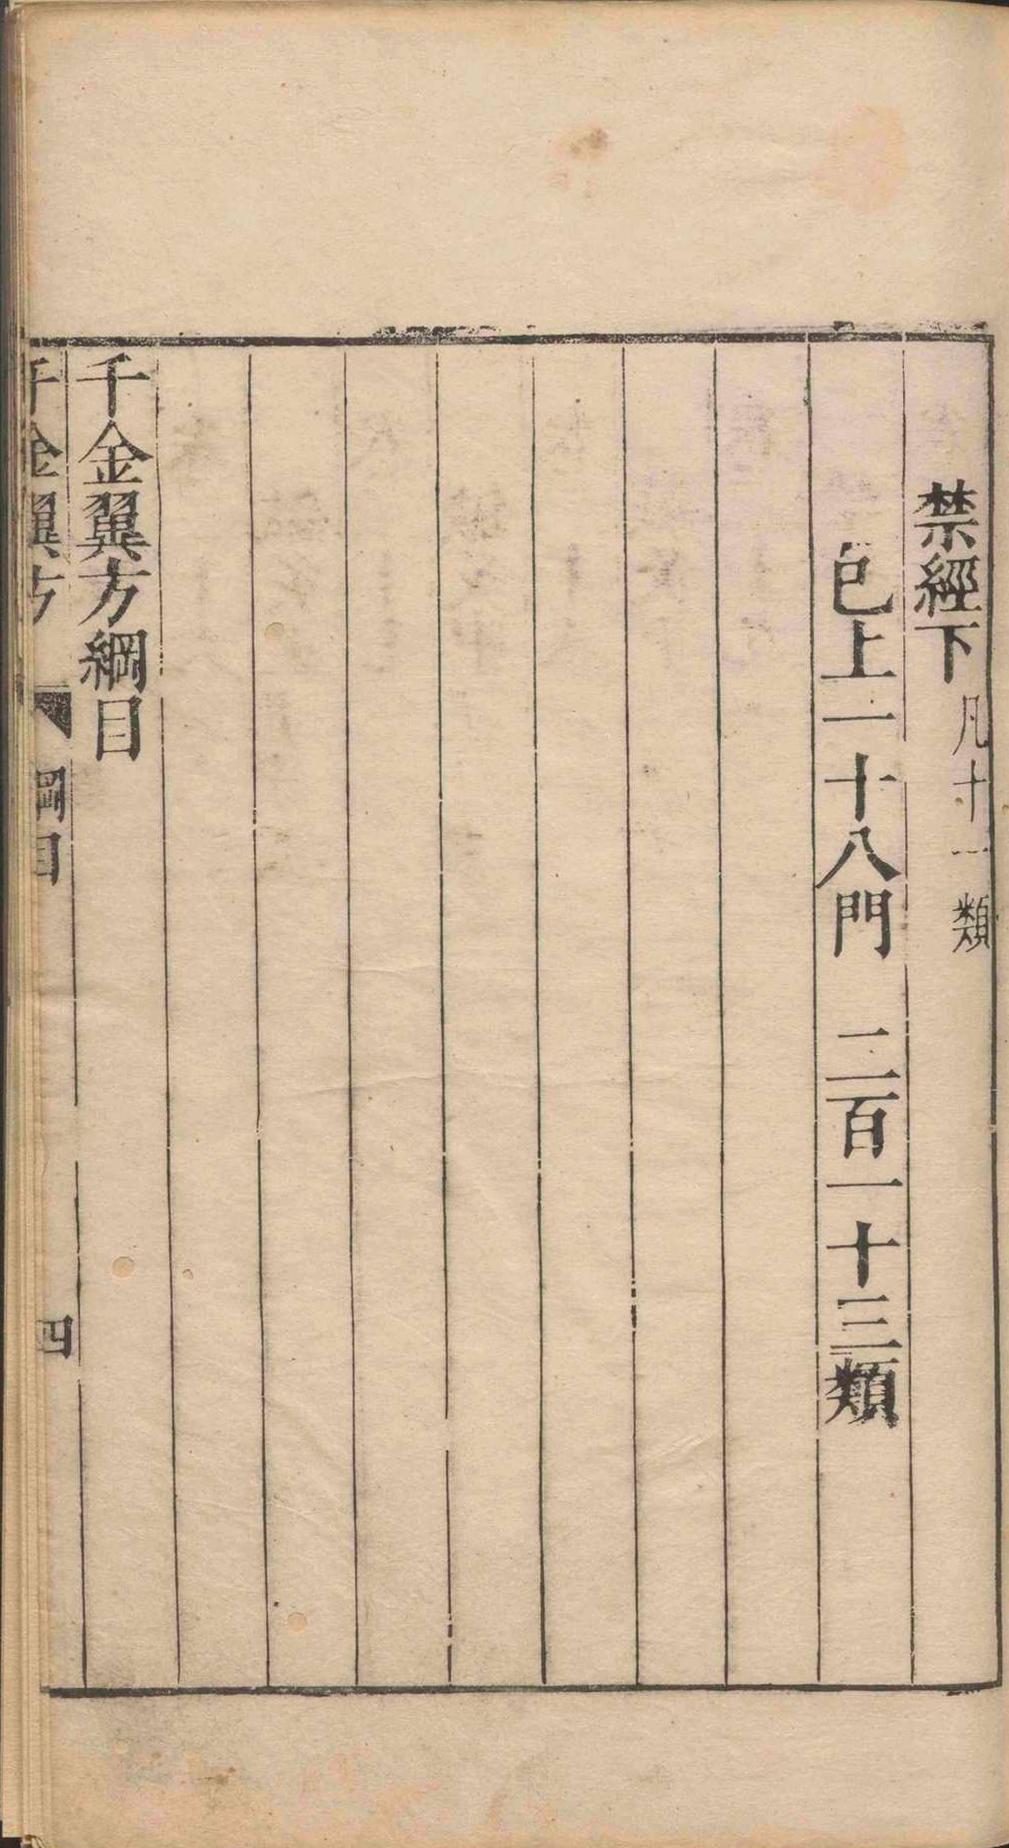 禁經下 凡十一類
已上一十八門 二百一十三類
千金翼方綱目
千金翼方 綱目 四